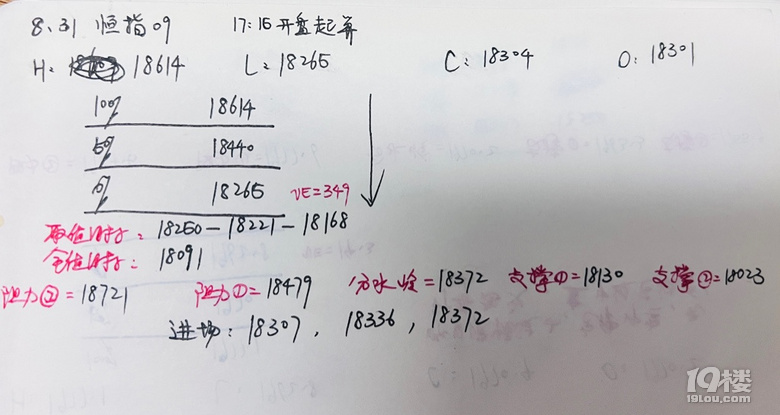 8.31 恒指09 17:15开盘起算
H: 18614 L: 18265 C: 18304 O: 18301
100% 18614
50% 18440
0% 18265 VE=349
18250-18221-18168
18091
阻力②=18721 阻力①=18479 分水岭=18372 支撑①=18130 支撑②=18023
进场: 18307, 18336, 18372
19楼
19lou.com